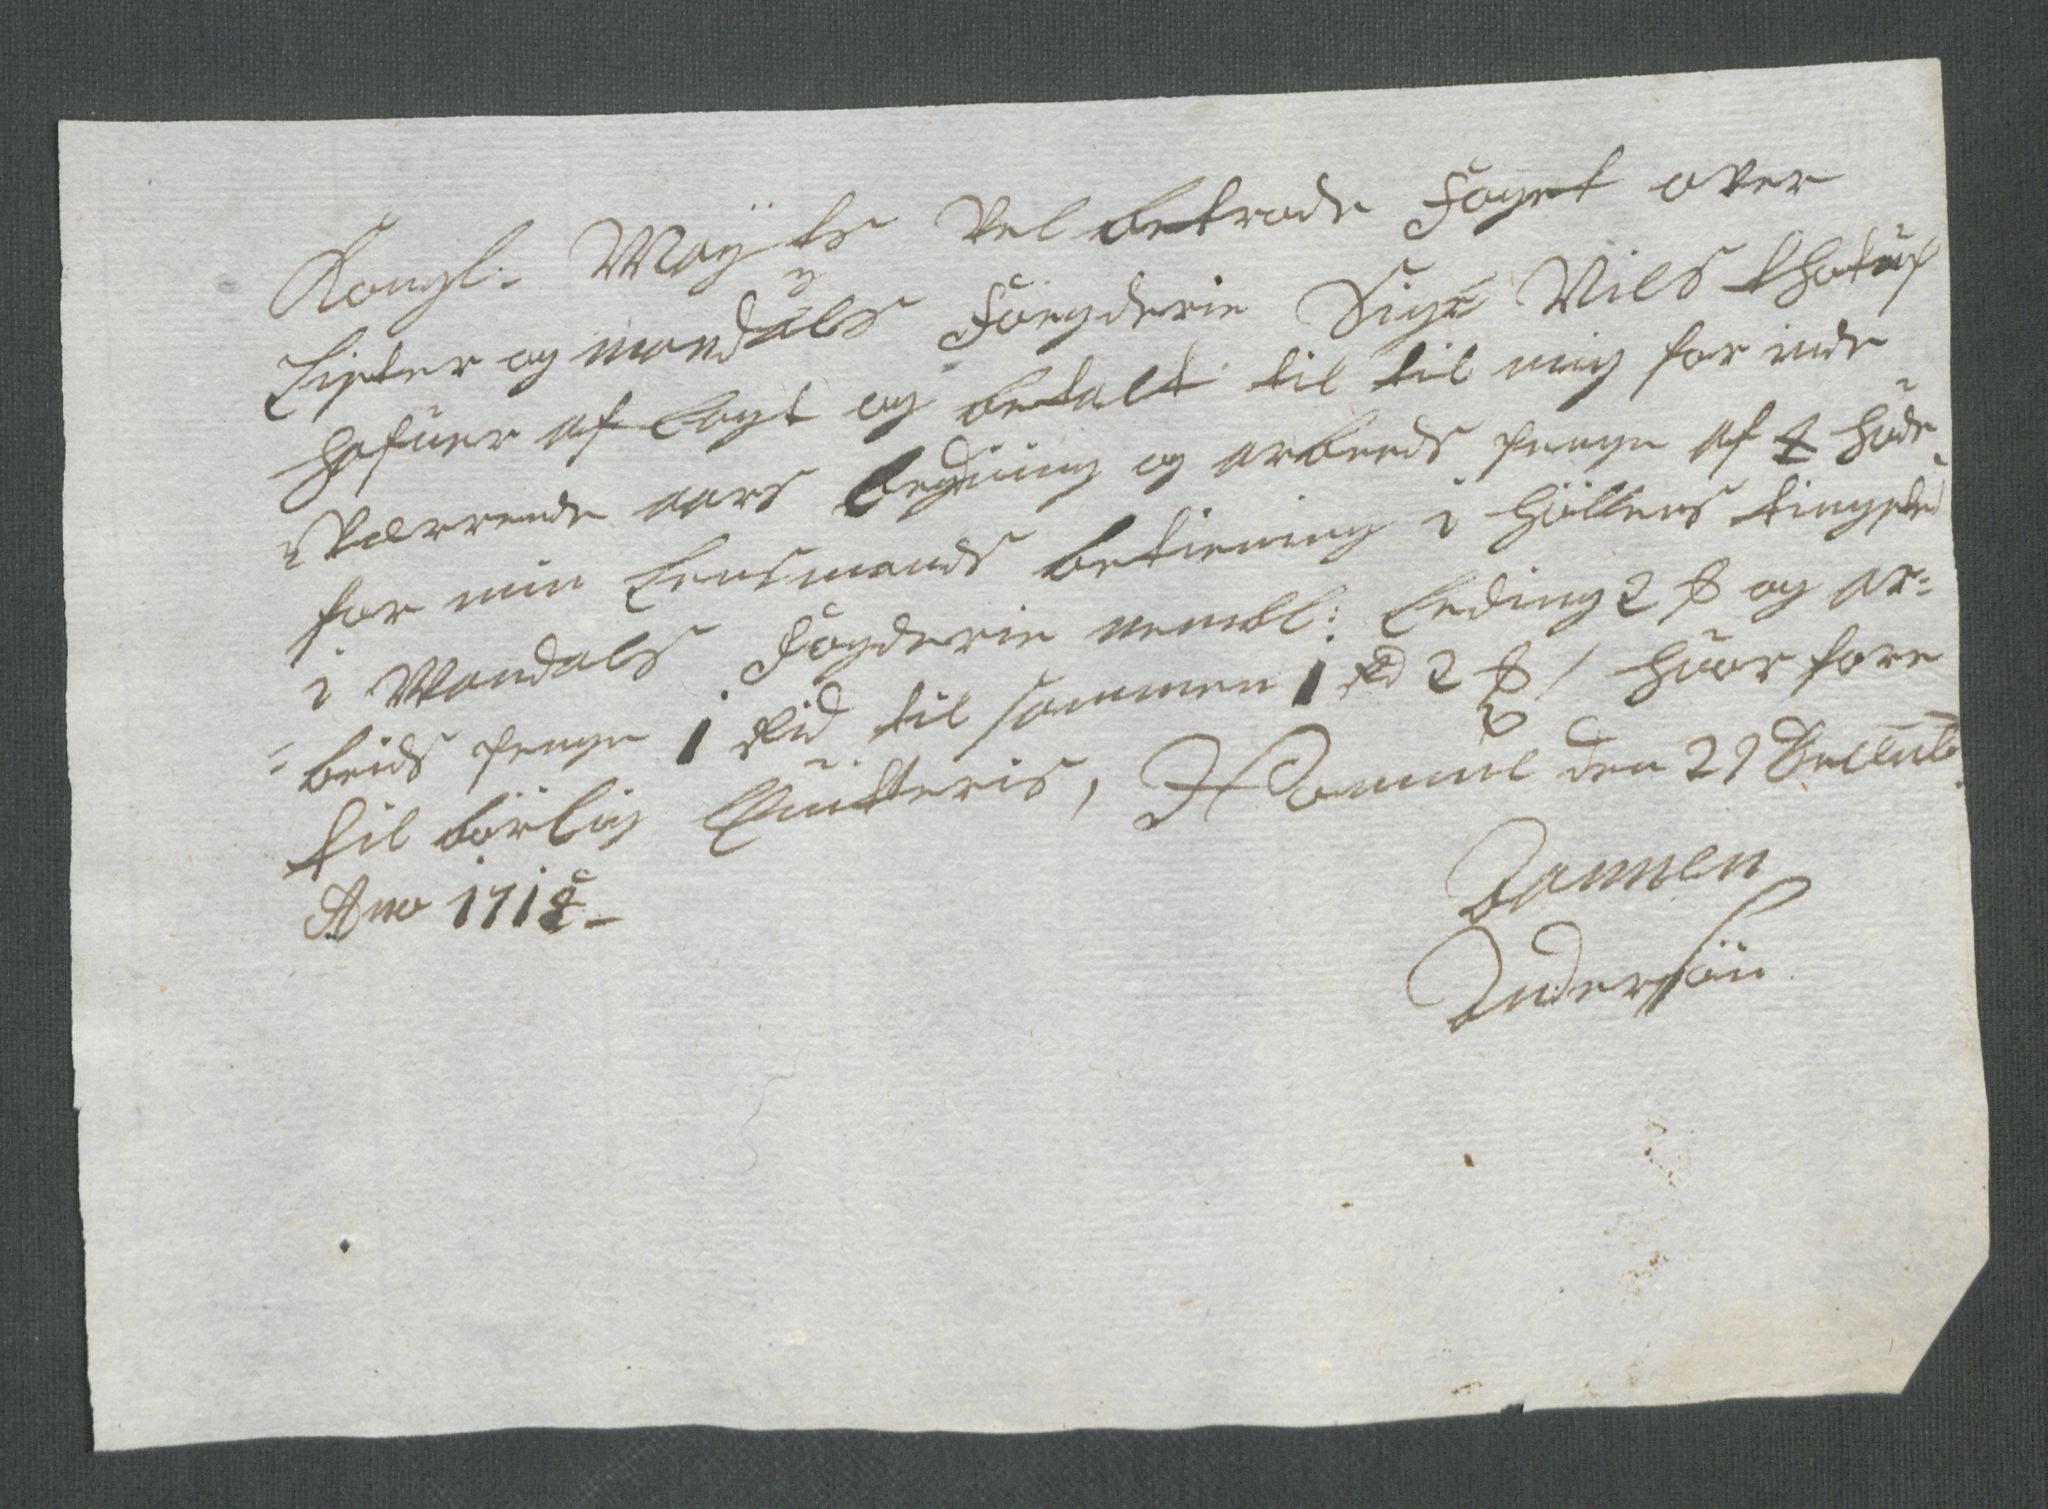 Kongl. Mayts Vel betrode Foget over
Lister og mandals Fougderie Sigr Nils thotup
hafuer af Lagt og betalt til til mig for inde
værrende aars Leding og arbeeds penge af 4 hude
for min Lensmands betiening i Hollens tingsted
i Mandals Fogderie nembl: Leding 2 ß og ar=
=beids penge 1 Rd til sammen 1 Rd 2 ß / huor fore
til børlig quitteris, den 29 Decemb
Ano 171
Tommen
Andersøn